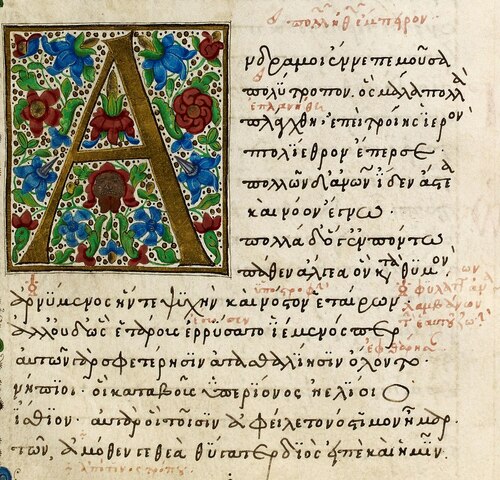 πολλὴ ἐμπείρου
Ἄνδρα μοι ἔννεπε μοῦσα
πολύτροπον· ὃς μάλα πολλὰ
ἐπλανήθη
πλάχθη· ἐπεὶ τροίης ἱερὸν
πτολίεθρον ἔπερσε·
πολλῶν δ' ἀνθρώπων ἴδεν ἄστεα
καὶ νόον ἔγνω·
πολλὰ δ' ὅγ' ἐν πόντω
πάθεν ἄλγεα ὃν κατὰ θυμόν·
ἀρνύμενος ἥν τε ψυχὴν καὶ νόστον ἑταίρων·
ἀλλ' οὐδ' ὣς ἑτάρους ἐρρύσατο ἱέμενός περ
αὐτῶν γὰρ σφετέρησιν ἀτασθαλίησιν ὄλοντο·
νήπιοι· οἳ κατὰ βοῦς ὑπερίονος ἠελίοιο
ἤσθιον· αὐτὰρ ὁ τοῖσιν ἀφείλετο νόστιμον ἦμαρ·
τῶν ἁμόθεν γε θεὰ θύγατερ διὸς εἰπὲ καὶ ἡμῖν·